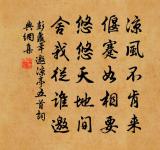 涼風不肯來
偃蹇如相要
悠悠天地間
舍我從誰邀
彭龜年邀涼亭五首詞
典網集